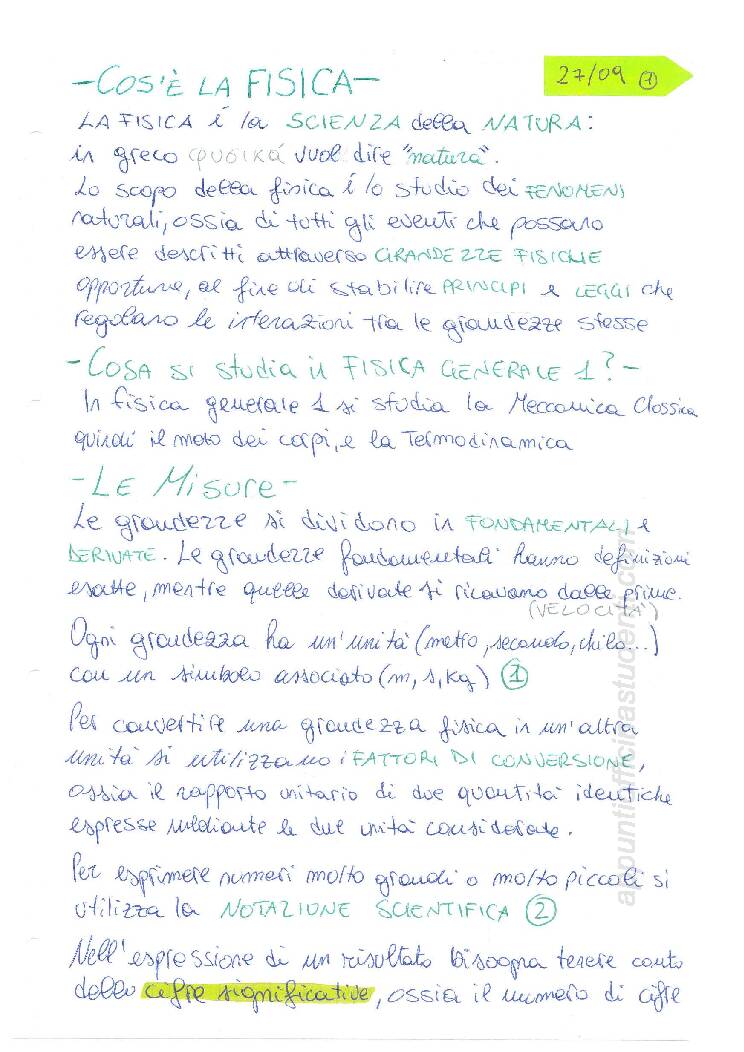 -COS'È LA FISICA-
27/09 1
LA FISICA é la SCIENZA della NATURA:
in greco φυσικά vuol dire "natura".
Lo scopo della fisica é lo studio dei FENOMENI
naturali, ossia di tutti gli eventi che possano
essere descritti attraverso GRANDEZZE FISICHE
opportune, al fine di stabilire PRINCIPI e LEGGI che
regolano le interazioni tra le grandezze stesse
-COSA SI Studia in FISICA GENERALE 1?-
In fisica generale 1 si studia la Meccanica Classica
quindi il moto dei corpi, e la Termodinamica
-LE Misure-
Le grandezze si dividono in FONDAMENTALI e
DERIVATE. Le grandezze fondamentali hanno definizioni
esatte, mentre quelle derivate si ricavano dalle prime.
(VELOCITÀ)
Ogni grandezza ha un'unità (metro, secondo, chilo...)
con un simbolo associato (m, s, kg) 1
Per convertire una grandezza fisica in un'altra
unità si utilizzano i FATTORI DI CONVERSIONE,
ossia il rapporto unitario di due quantità identiche
espresse mediante le due unità considerate.
Per esprimere numeri molto grandi o molto piccoli si
utilizza la NOTAZIONE SCIENTIFICA 2
Nell'espressione di un risultato bisogna tenere conto
delle cifre significative, ossia il numero di cifre
appuntiofficinastudenti.com